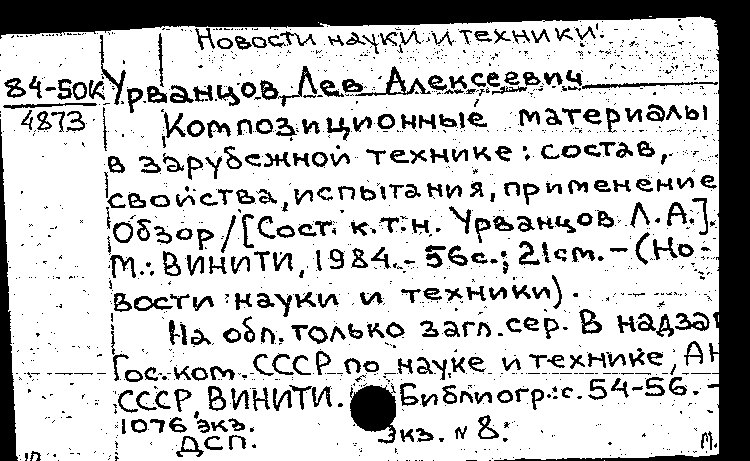 Новости науки и техники.
84-50К Урванцов, Лев Алексеевич
4873 Композиционные материалы
в зарубежной технике: состав,
свойства, испытания, применение
Обзор / [Сост. к.т.н. Урванцов Л.А.].
М.: ВИНИТИ, 1984. - 56с.; 21см. - (Но-
вости науки и техники).
На обл. только загл. сер. В надзаг
Гос. ком. СССР по науке и технике, АН
СССР, ВИНИТИ. Библиогр.: с. 54-56. -
1076 экз.
ДСП. Экз. № 8.
М.